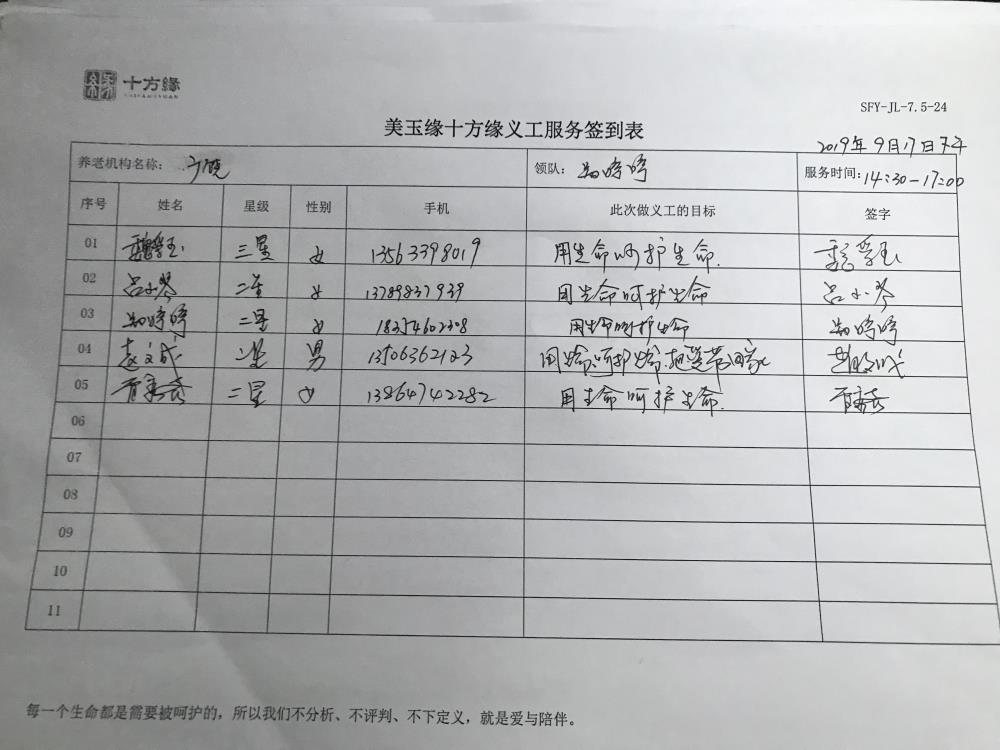 十方缘
SFY-JL-7.5-24
美玉缘十方缘义工服务签到表
2019年9月17日下午
养老机构名称： 领队： 婷婷 服务时间：14:30-17:00
序号 姓名 星级 性别 手机 此次做义工的目标 签字
01 三星 女 13563398019 用生命呵护生命.
02 吕小琴 二星 女 13789837939 用生命呵护生命 吕小琴
03 婷婷 二星 女 用生命呵护生命 婷婷
04 赵文成 二星 男 13506362123 用生命呵护生命.把爱带回家 赵文成
05 二星 女 13864742282 用生命呵护生命.
06
07
08
09
10
11
每一个生命都是需要被呵护的，所以我们不分析、不评判、不下定义，就是爱与陪伴。